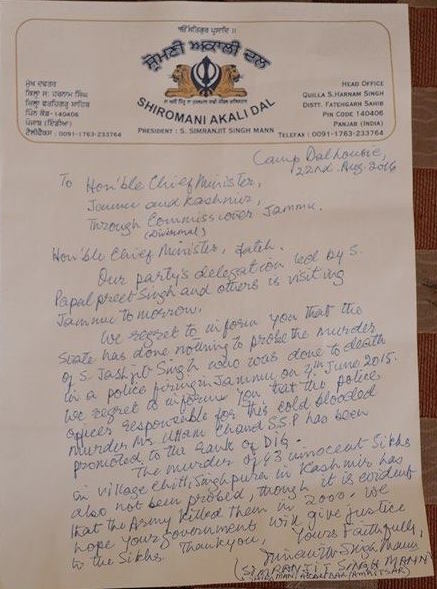 ੴ ਸਤਿਗੁਰ ਪ੍ਰਸਾਦਿ ॥
ਸ਼੍ਰੋਮਣੀ ਅਕਾਲੀ ਦਲ
SHIROMANI AKALI DAL
PRESIDENT : S. SIMRANJIT SINGH MANN
ਮੁੱਖ ਦਫਤਰ
ਕਿਲ੍ਹਾ ਸ: ਹਰਨਾਮ ਸਿੰਘ
ਜ਼ਿਲ੍ਹਾ ਫਤਹਿਗੜ੍ਹ ਸਾਹਿਬ
ਪਿੰਨ ਕੋਡ-140406
ਪੰਜਾਬ (ਇੰਡੀਆ)
ਟੈਲੀਫੈਕਸ : 0091-1763-233764
HEAD OFFICE
QUILLA S.HARNAM SINGH
DISTT. FATEHGARH SAHIB
PIN CODE 140406
PANJAB (INDIA)
TELEFAX : 0091-1763-233764
Camp Dalhousie,
22nd Aug. 2016
To Hon'ble Chief Minister,
Jammu and Kashmir,
Through Commissioner Jammu.
(Divisional)
Hon'ble Chief Minister, Fateh.
Our party's delegation led by S.
Papalpreet Singh and others is visiting
Jammu tomorrow.
We regret to inform you that the
State has done nothing to probe the murder
of S. Jashjit Singh who was done to death
in a police firing in Jammu on 4th June 2015.
We regret to inform you that the police
officer responsible for this cold blooded
murder Mr Uttam Chand S.S.P has been
promoted to the Rank of DIG.
The murder of 43 innocent Sikhs
in village Chitti Singhpura in Kashmir has
also not been probed, though it is evident
that the Army killed them in 2000. We
hope your government will give justice
to the Sikhs. Thank you, Yours Faithfully,
(SIMRANJIT SINGH MANN)